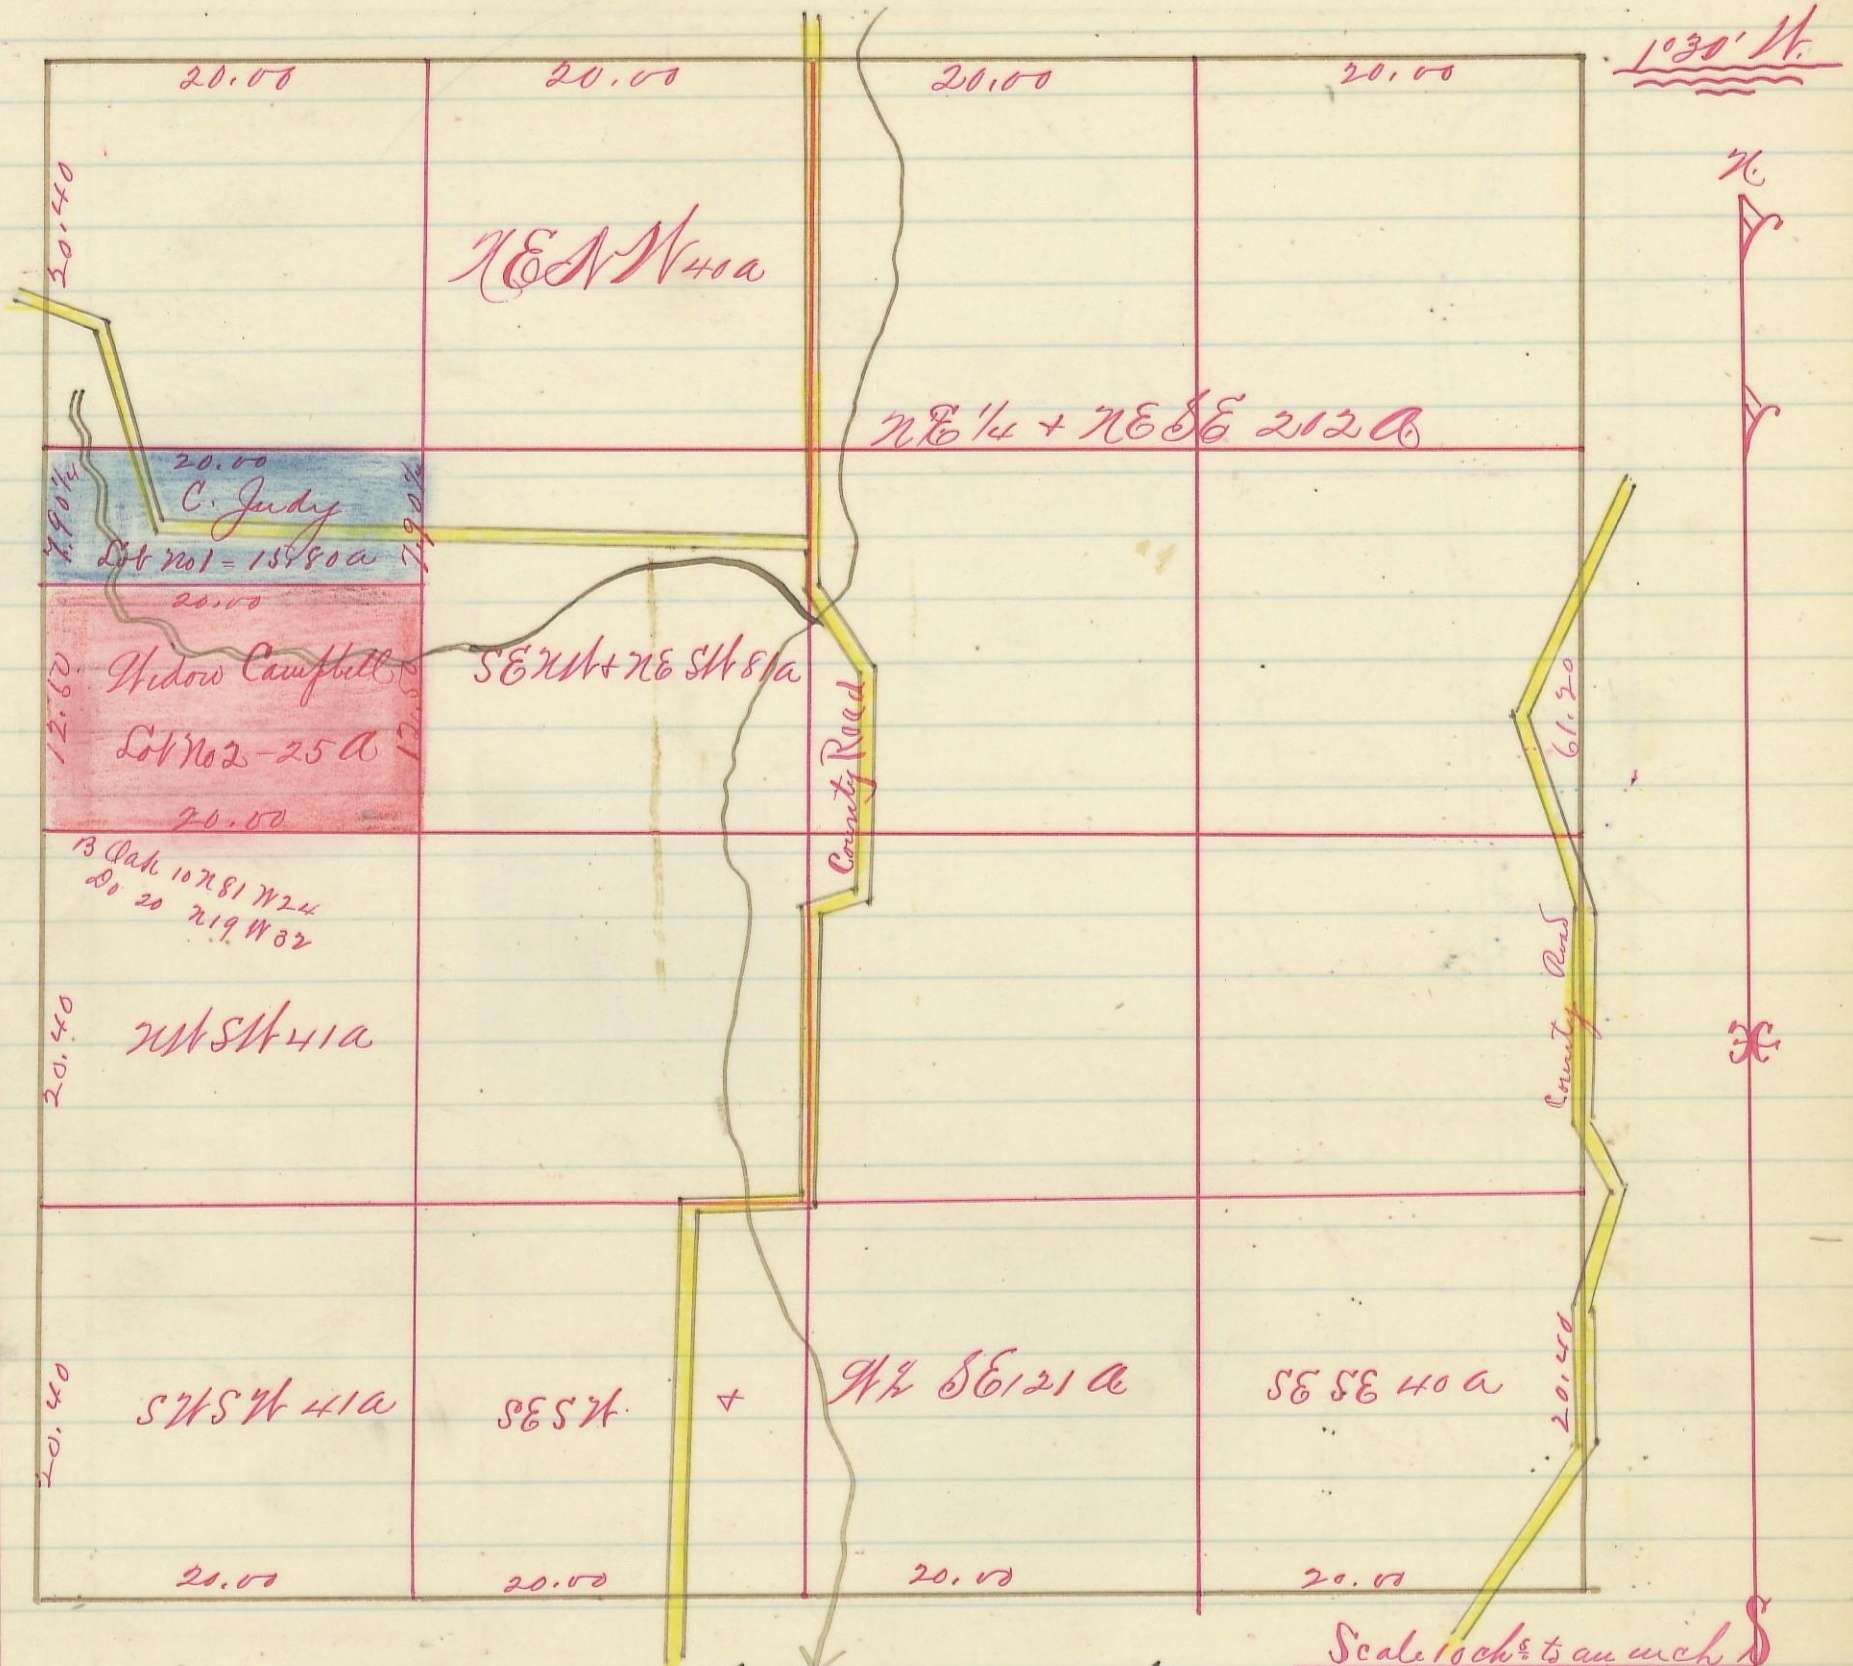 1°30' W.
20.00
20.00
20.00
20.00
N.
20.40
NENW 40a
NE 1/4 + NESE 202 A
20.00
7.90 1/4
C. Judy
7.90 1/4
Lot No 1 = 15.80 a
20.00
12.60
Widow Campbell
12.50
SENW + NE SW 81a
Lot No 2 - 25 A
County Road
61.20
20.00
B Oak 10 N 81 W 24
Do 20 N 19 W 32
20.40
NWSW 41a
County Road
20.40
SWSW 41a
SESW.
+
W½ SE 121 A
SESE 40a
20.40
20.00
20.00
20.00
20.00
Scale 10 chs to an inch
S